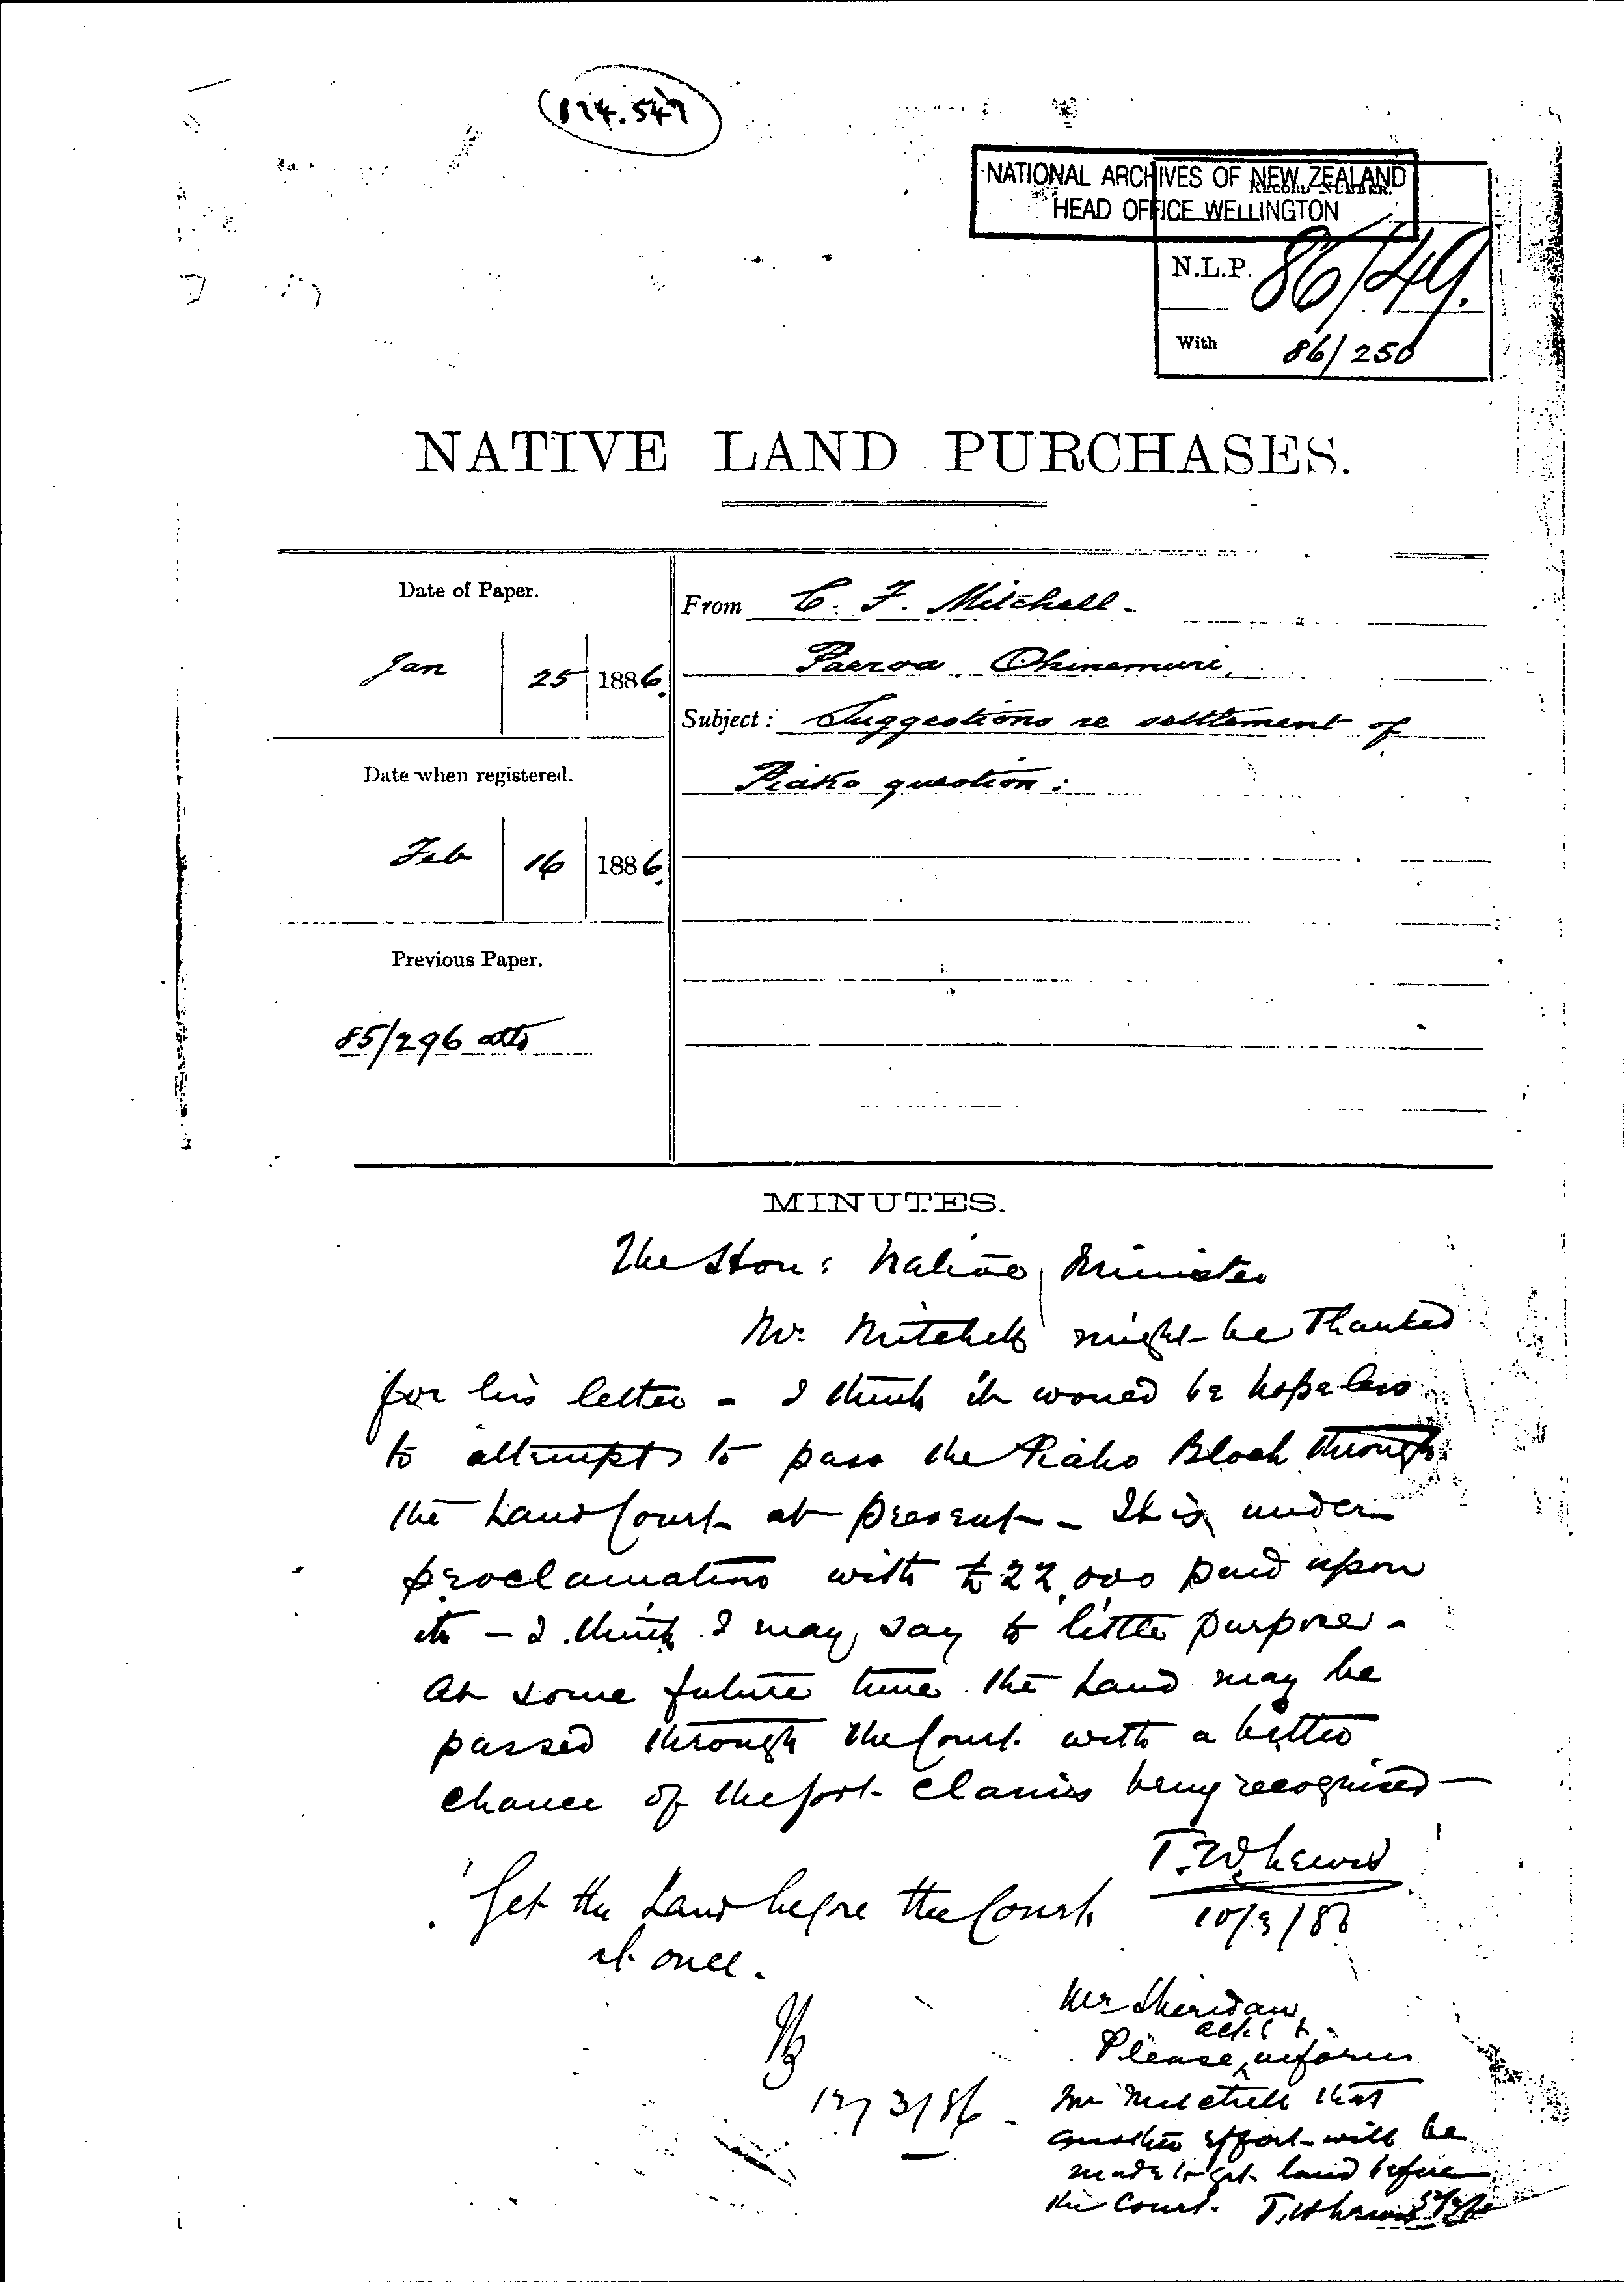 (874.547)
NATIONAL ARCHIVES OF NEW ZEALAND
HEAD OFFICE WELLINGTON
N.L.P. 86/49.
With 86/250
NATIVE LAND PURCHASES.
Date of Paper.
Jan 25 1886.
Date when registered.
Feb 16 1886.
Previous Paper.
85/296 atts
From C. F. Mitchell
Paeroa Ohinemuri,
Subject: Suggestions re settlement of
Piako question:
MINUTES.
The Hon: Native Minister
Mr. Mitchell might be thanked
for his letter - I think it would be hopeless
to attempt to pass the Piako Block through
the Land Court at present - It is under
proclamation with £22,000 paid upon
it - I think I may say to little purpose -
At some future time the Land may be
passed through the Court with a better
chance of the Govt. claims being recognised -
T.W. Lewis
10/3/86
Get the Land before the Court
at once.
12/3/86
Mr Sheridan,
Please inform
Mr Mitchell that
another effort will be
made to get land before
the Court. T.W. Lewis